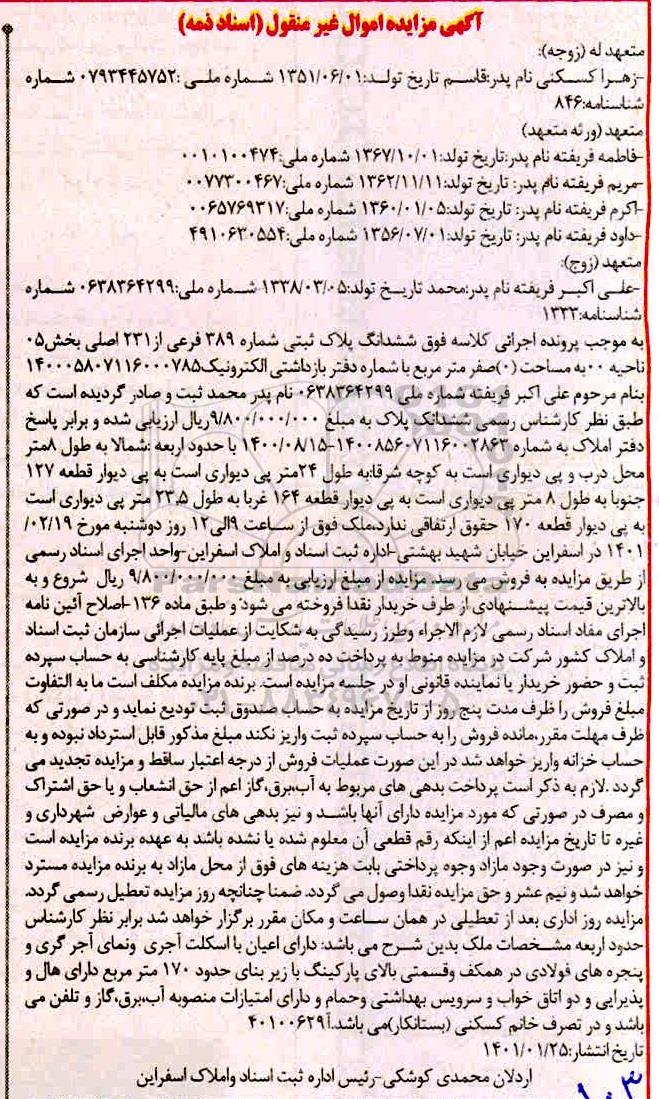 آگهی مزایده اموال غیر منقول (اسناد ذمه)
متعهد له (زوجه):
-زهرا کسکنی نام پدر:قاسم تاریخ تولد:۱۳۵۱/۰۶/۰۱ شماره ملی :۰۷۹۳۴۴۵۷۵۲ شماره
شناسنامه:۸۴۶
متعهد(ورثه متعهد)
-فاطمه فریفته نام پدر:تاریخ تولد:۱۳۶۷/۱۰/۰۱ شماره ملی:۰۰۱۰۱۰۰۴۷۴
-مریم فریفته نام پدر: تاریخ تولد:۱۳۶۲/۱۱/۱۱ شماره ملی:۰۰۷۷۳۰۰۴۶۷
-اکرم فریفته نام پدر: تاریخ تولد:۱۳۶۰/۰۱/۰۵ شماره ملی:۰۰۶۵۷۶۹۳۱۷
-داود فریفته نام پدر: تاریخ تولد:۱۳۵۶/۰۷/۰۱ شماره ملی:۴۹۱۰۶۳۰۵۵۴
متعهد (زوج):
-علی اکبر فریفته نام پدر:محمد تاریخ تولد:۱۳۳۸/۰۳/۰۵ شماره ملی:۰۶۳۸۳۶۴۲۹۹ شماره
شناسنامه:۱۳۳۳
به موجب پرونده اجرائی کلاسه فوق ششدانگ پلاک ثبتی شماره ۳۸۹ فرعی از۲۳۱ اصلی بخش۰۵
ناحیه ۰۰به مساحت (۰)صفر متر مربع با شماره دفتر بازداشتی الکترونیک۱۴۰۰۰۵۸۰۷۱۱۶۰۰۰۷۸۵
بنام مرحوم علی اکبر فریفته شماره ملی ۰۶۳۸۳۶۴۲۹۹ نام پدر محمد ثبت و صادر گردیده است که
طبق نظر کارشناس رسمی ششدانگ پلاک به مبلغ ۹/۸۰۰/۰۰۰/۰۰۰ریال ارزیابی شده و برابر پاسخ
دفتر املاک به شماره ۱۴۰۰۸۵۶۰۷۱۱۶۰۰۲۸۶۳-۱۴۰۰/۰۸/۱۵ با حدود اربعه :شمالا به طول ۸متر
محل درب و پی دیواری است به کوچه شرقا:به طول ۲۴متر پی دیواری است به پی دیوار قطعه ۱۲۷
جنوبا به طول ۸ متر پی دیواری است به پی دیوار قطعه ۱۶۴ غربا به طول ۲۳.۵ متر پی دیواری است
به پی دیوار قطعه ۱۷۰ حقوق ارتفاقی ندارد،ملک فوق از ساعت ۹الی۱۲ روز دوشنبه مورخ ۰۲/۱۹/
۱۴۰۱ در اسفراین خیابان شهید بهشتی-اداره ثبت اسناد و املاک اسفراین-واحد اجرای اسناد رسمی
از طریق مزایده به فروش می رسد. مزایده از مبلغ ارزیابی به مبلغ ۹/۸۰۰/۰۰۰/۰۰۰ ریال شروع و به
بالاترین قیمت پیشنهادی از طرف خریدار نقدا فروخته می شود و طبق ماده ۱۳۶ -اصلاح آئین نامه
اجرای مفاد اسناد رسمی لازم الاجراء وطرز رسیدگی به شکایت از عملیات اجرائی سازمان ثبت اسناد
و املاک کشور شرکت در مزایده منوط به پرداخت ده درصد از مبلغ پایه کارشناسی به حساب سپرده
ثبت و حضور خریدار یا نماینده قانونی او در جلسه مزایده است. برنده مزایده مکلف است ما به التفاوت
مبلغ فروش را ظرف مدت پنج روز از تاریخ مزایده به حساب صندوق ثبت تودیع نماید و در صورتی که
ظرف مهلت مقرر،مانده فروش را به حساب سپرده ثبت واریز نکند مبلغ مذکور قابل استرداد نبوده و به
حساب خزانه واریز خواهد شد در این صورت عملیات فروش از درجه اعتبار ساقط و مزایده تجدید می
گردد .لازم به ذکر است پرداخت بدهی های مربوط به آب،برق،گاز اعم از حق انشعاب و یا حق اشتراک
و مصرف در صورتی که مورد مزایده دارای آنها باشد و نیز بدهی های مالیاتی و عوارض شهرداری و
غیره تا تاریخ مزایده اعم از اینکه رقم قطعی آن معلوم شده یا نشده باشد به عهده برنده مزایده است
و نیز در صورت وجود مازاد وجوه پرداختی بابت هزینه های فوق از محل مازاد به برنده مزایده مسترد
خواهد شد و نیم عشر و حق مزایده نقدا وصول می گردد. ضمنا چنانچه روز مزایده تعطیل رسمی گردد.
مزایده روز اداری بعد از تعطیلی در همان ساعت و مکان مقرر برگزار خواهد شد برابر نظر کارشناس
حدود اربعه مشخصات ملک بدین شرح می باشد: دارای اعیان با اسکلت آجری ونمای آجر گری و
پنجره های فولادی در همکف وقسمتی بالای پارکینگ با زیر بنای حدود ۱۷۰ متر مربع دارای هال و
پذیرایی و دو اتاق خواب و سرویس بهداشتی وحمام و دارای امتیازات منصوبه آب،برق،گاز و تلفن می
باشد و در تصرف خانم کسکنی (بستانکار)می باشد.آ۴۰۱۰۰۶۲۹
تاریخ انتشار:۱۴۰۱/۰۱/۲۵
اردلان محمدی کوشکی-رئیس اداره ثبت اسناد واملاک اسفراین
۱۰۳